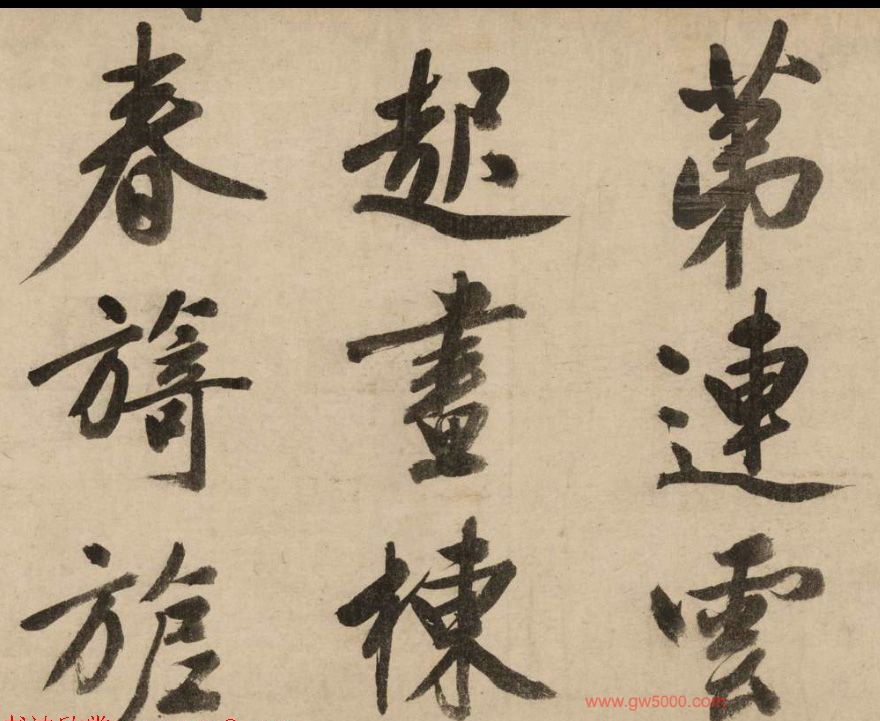 第連雲
起畫棟
春旖旎
www.gw5000.com